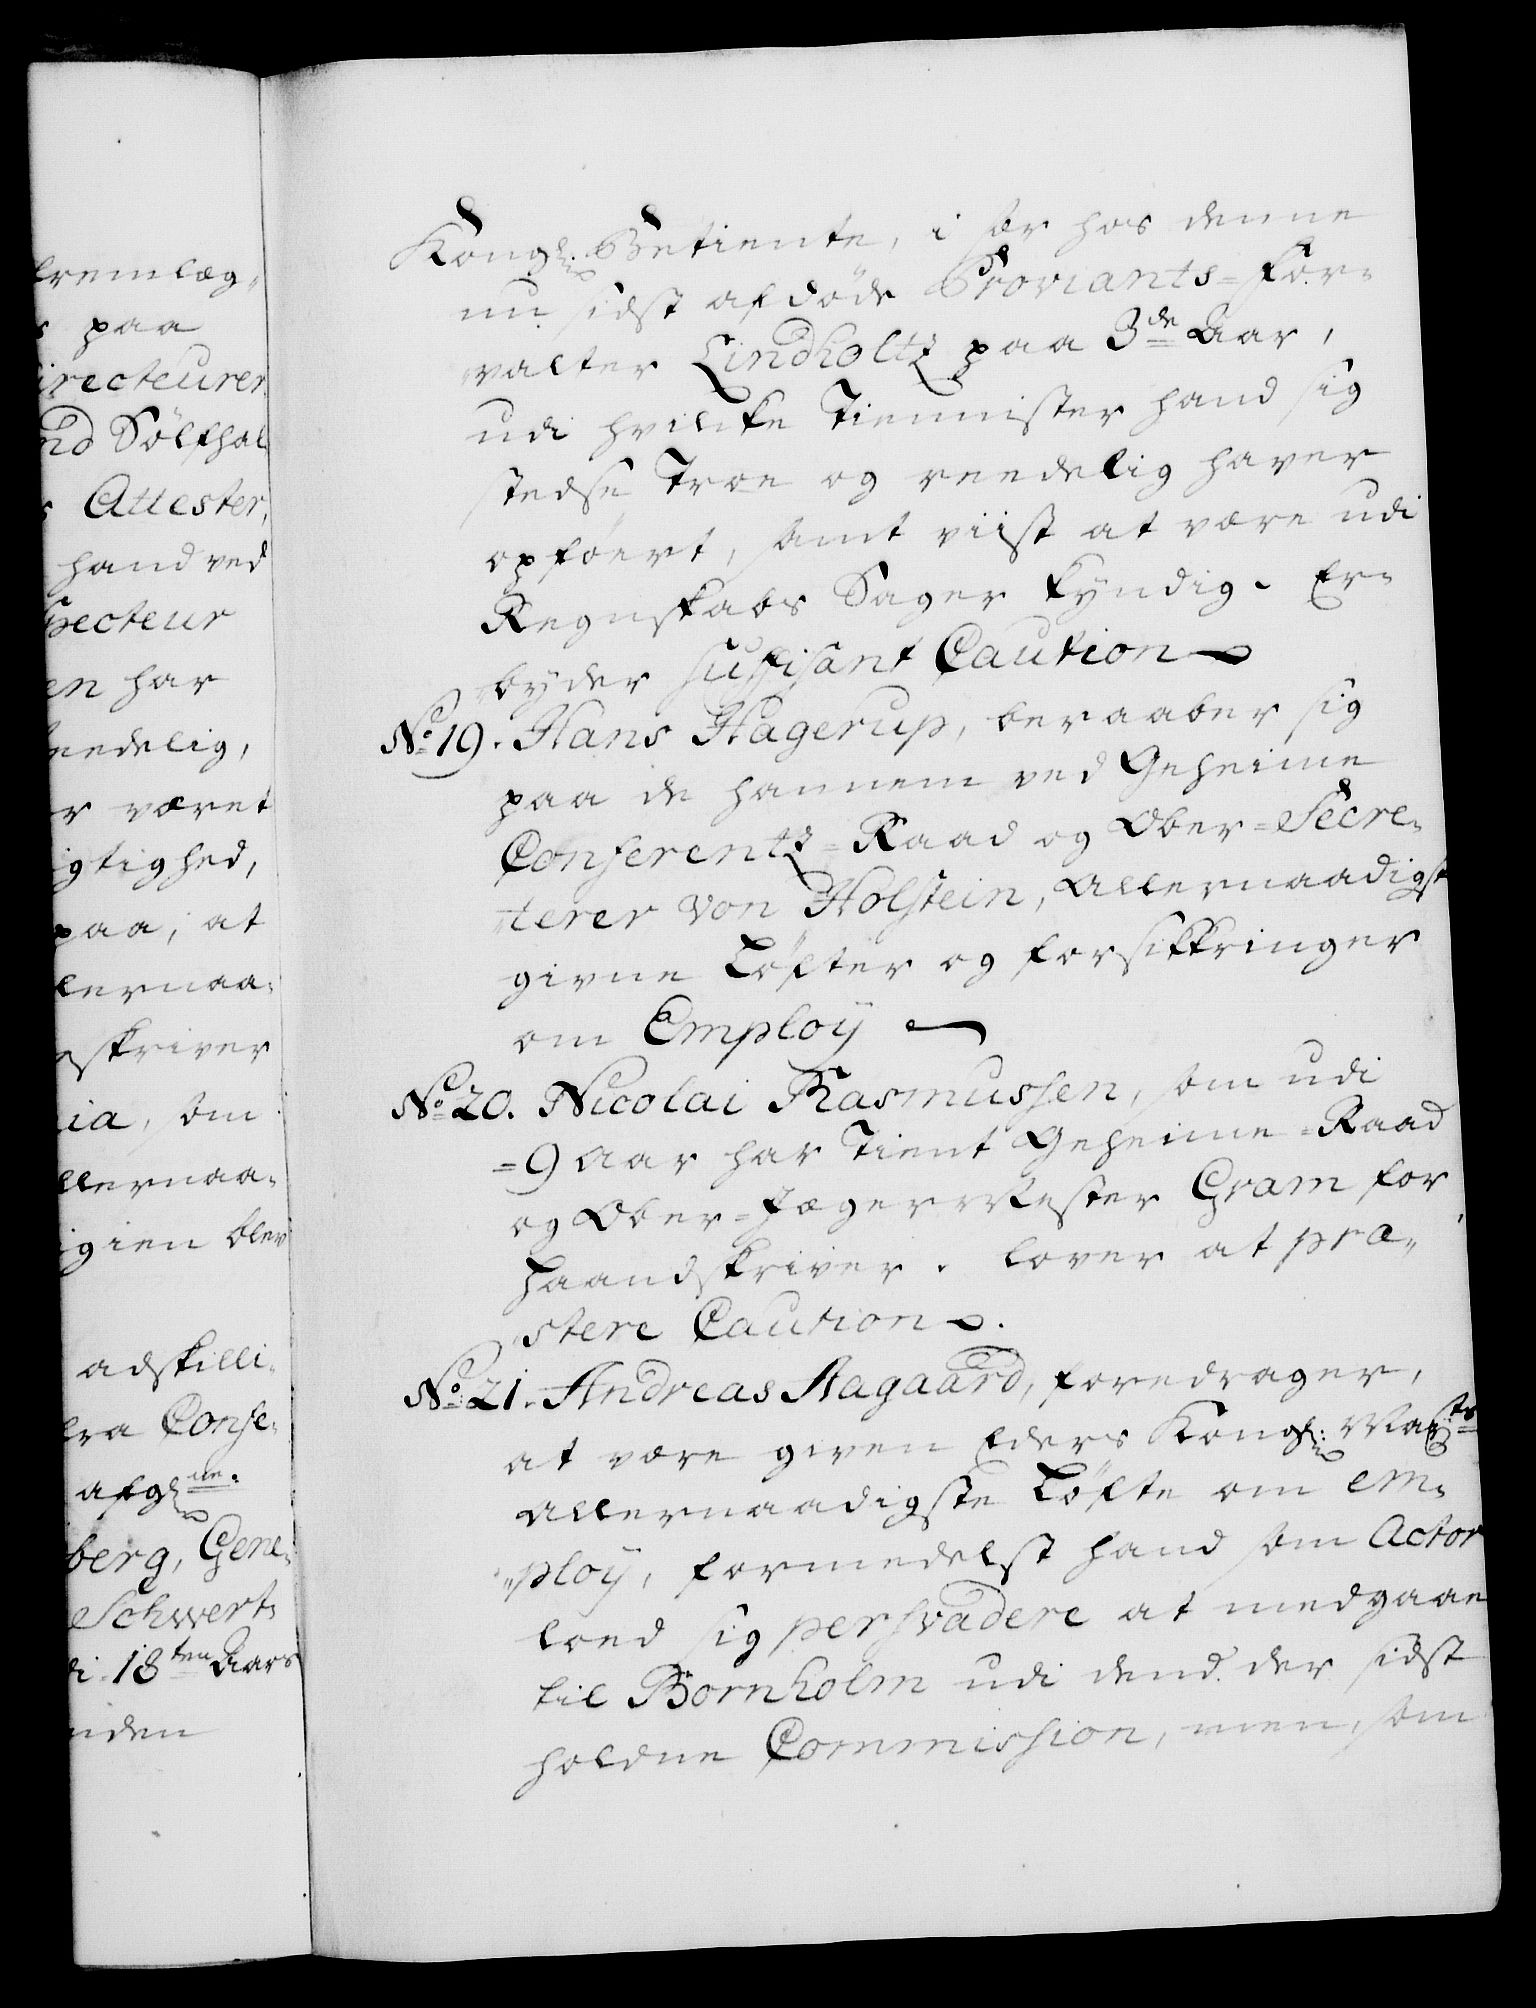 fremlæg-
paa
irecteurer
nd Sölfhal
Attester,
hand ved
specteur
en har
eedelig,
r været
igtighed,
paa, at
llernaa-
skriver
ia, som
llernaa-
igien blev
adskilli-
fra Confe-
afgl: ne.
berg, Gene-
Schwert-
di 18 ten Aars
nden
Kongl: Betiente, i sær hos denne
nu sidst afdöde Proviants-For-
valter Lindholtz paa 3de Aar,
udi hvilcke Tiennister hand sig
stedse Troe og reedelig haver
opföert, samt viist at være udi
Regnskabs Sager kyndig. Er-
byder suffisant Caution
No 19. Hans Hagerup, beraaber sig
paa de hannem ved Geheime
Conferentz-Raad og Ober-Secre-
terer von Holstein, Allernaadigst
givne Löfter og forsikkringer
om Employ
No 20. Nicolai Rasmussen, som udi
-9 Aar har Tient Geheime-Raad
og Ober-JægerMester Gram for
Haandskriver. lover at præ-
stere Caution.
No 21. Andreas Aagaard, foredrager,
at være given Eders Kongl: Mayts
Allernaadigste Löfte om em-
ploy, formedelst hand som Actor
loed sig persvadere at medgaae
til Bornholm udi dend der sidst
holdne Commission, men, som